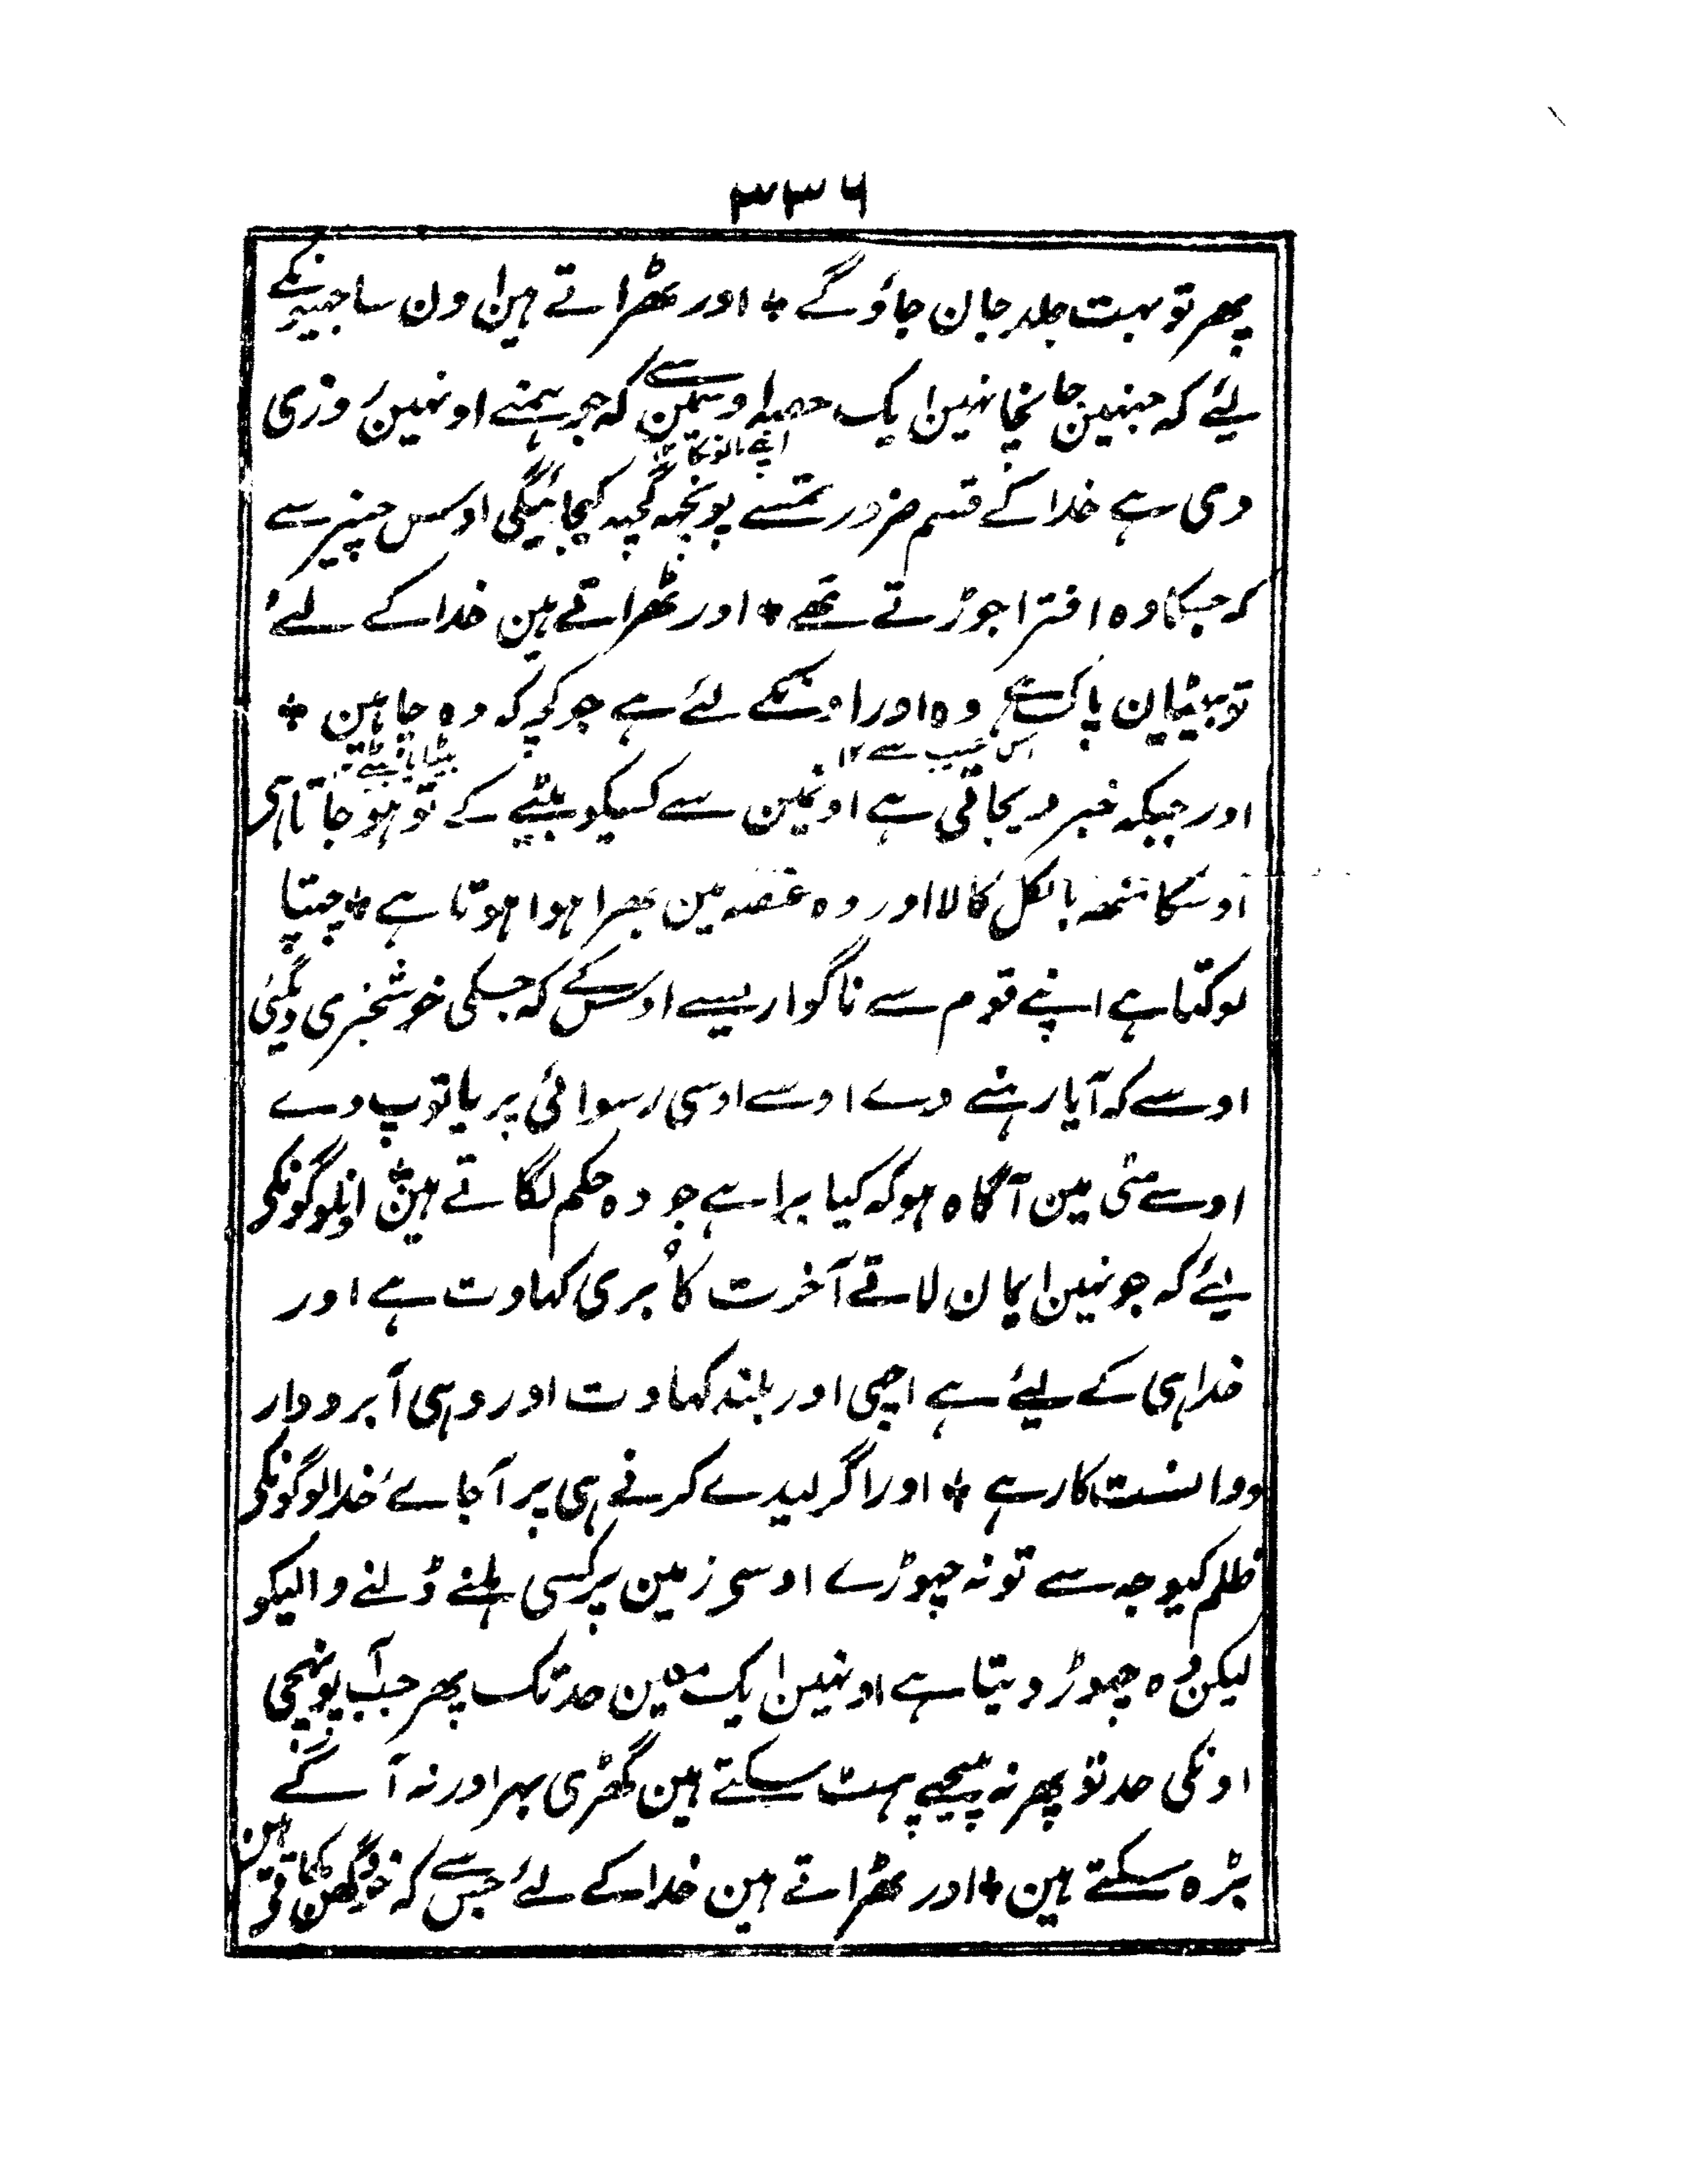 ۳۳۶
پھر تو بہت جلد جان جاؤ گے * اور ٹھراتے ہین اون ساجھیونکے
لیئے کہ جنہین جانچا نہین ایک حصہ اوسمین سے کہ جو ہمنے اونہین روزی
دی ہے خدا کے قسم ضرور تمسے پونچہہ گچہہ کیجائیگی اوس چیز سے
کہ جسکا وہ افترا جوڑتے تھے * اور ٹھراتے ہین خدا کے لئے
تو بیٹیان پاک ہے وہ اور اونکے لئے ہے جو کچہ کہ وہ چاہین *
اس عیب سے ۱۲
اور جبکہ خبر دیجاتی ہے اونمین سے کسیکو بیٹیے کے تو ہو جاتا ہی
اوسکا منھہ بالکل کالا اور وہ غصہ مین بھرا ہوا ہوتا ہے * چھپتا
لوکتا ہے اپنے قوم سے ناگواریسے اوس کے کہ جسکی خوشخبری دیگئی
اوسے کہ آیا رہنے دے اوسے اوسی رسوائی پر یا توپ دے
اوسے مٹی مین آگاہ ہو کہ کیا برا ہے جو وہ حکم لگاتے ہین * اونلوگونکی
لیئے کہ جو نہین ایمان لاتے آخرت کا بری کہاوت ہے اور
خدا ہی کے لیئے ہے اچھی اور بلند کہاوت اور وہی آبرودار
ووانستکار ہے * اور اگر لیدے کرنے ہی پر آجاۓ خدا لوگونکی
ظلم کیوجہ سے تو نہ چھوڑے اوسی زمین پر کسی ہلنے ڈلنے والیکو
لیکن وہ چھوڑ دیتا ہے اونہین ایک معین حد تک پھر جب آپونہچی
اونکی حد تو پھر نہ پیچھے ہٹ سکتے ہین گھڑی بہر اور نہ آگے
بڑہ سکتے ہین * اور ٹھراتے ہین خدا کے لئے جس سے کہ خود گھن کھاتے ہین